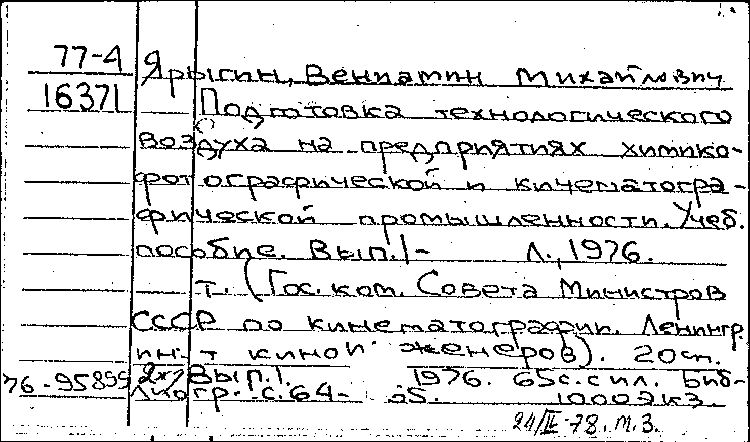 77-4 Ярыгин, Вениамин Михайлович
16371 Подготовка технологического
воздуха на предприятиях химико-
фотографической и кинематогра-
фической промышленности. Учеб.
пособие. Вып. 1- Л., 1976.
т. (Гос. ком. Совета Министров
СССР по кинематографии. Ленингр.
ин-т киноинженеров). 20 см.
76-95855 Вып. 1. 1976. 65 с. с ил. Биб-
лиогр. с. 64-65. 1000 экз.
24/III-78. М.З.